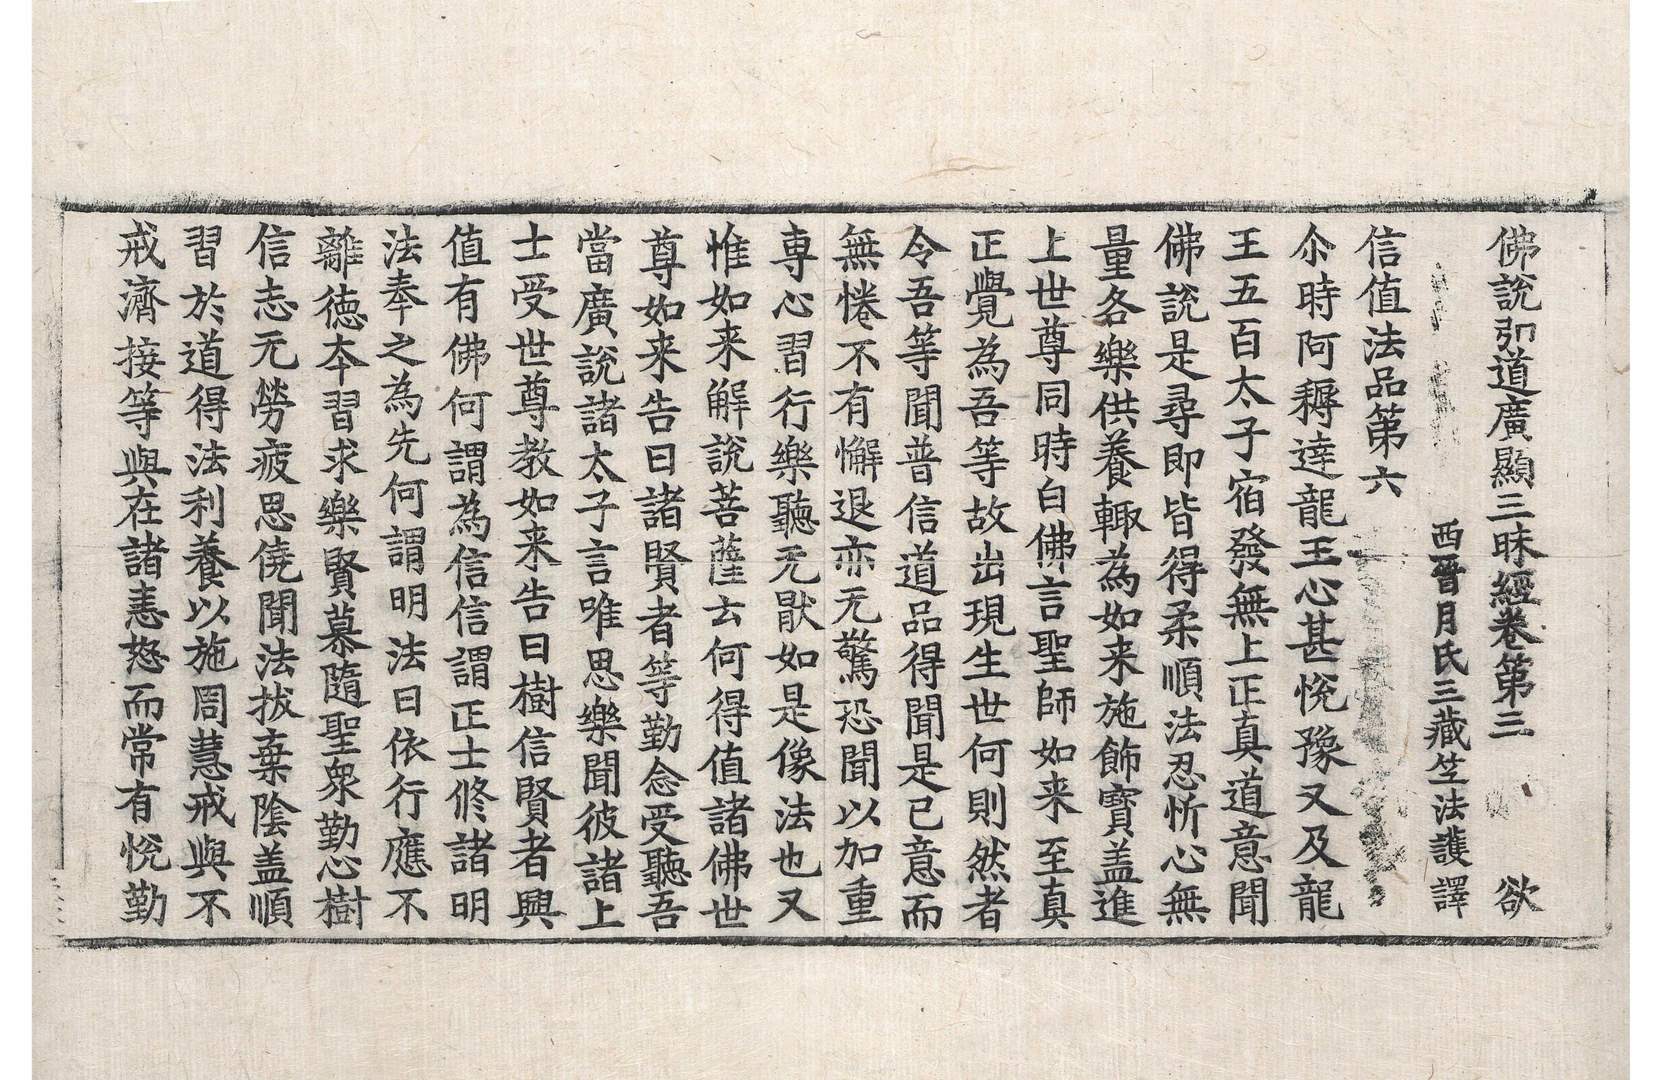 佛說弘道廣顯三昧經卷第三　欲
西晉月氏三藏竺法護譯
信值法品第六
尒時阿耨達龍王心甚悅豫又及龍
王五百太子宿發無上正真道意聞
佛說是尋即皆得柔順法忍忻心無
量各樂供養輙為如来施飾寶盖進
上世尊同時白佛言聖師如来至真
正覺為吾等故出現生世何則然者
令吾等聞普信道品得聞是已意而
無惓不有懈退亦无驚恐聞以加重
專心習行樂聽无猒如是像法也又
惟如来解說菩薩云何得值諸佛世
尊如来告曰諸賢者等勤念受聽吾
當廣說諸太子言唯思樂聞彼諸上
士受世尊教如来告曰樹信賢者興
值有佛何謂為信信謂正士修諸明
法奉之為先何謂明法曰依行應不
離德本習求樂賢慕隨聖衆勤心樹
信志无勞疲思僥聞法拔棄陰盖順
習於道得法利養以施周慧戒與不
戒濟接等與在諸恚怒而常有悅勤